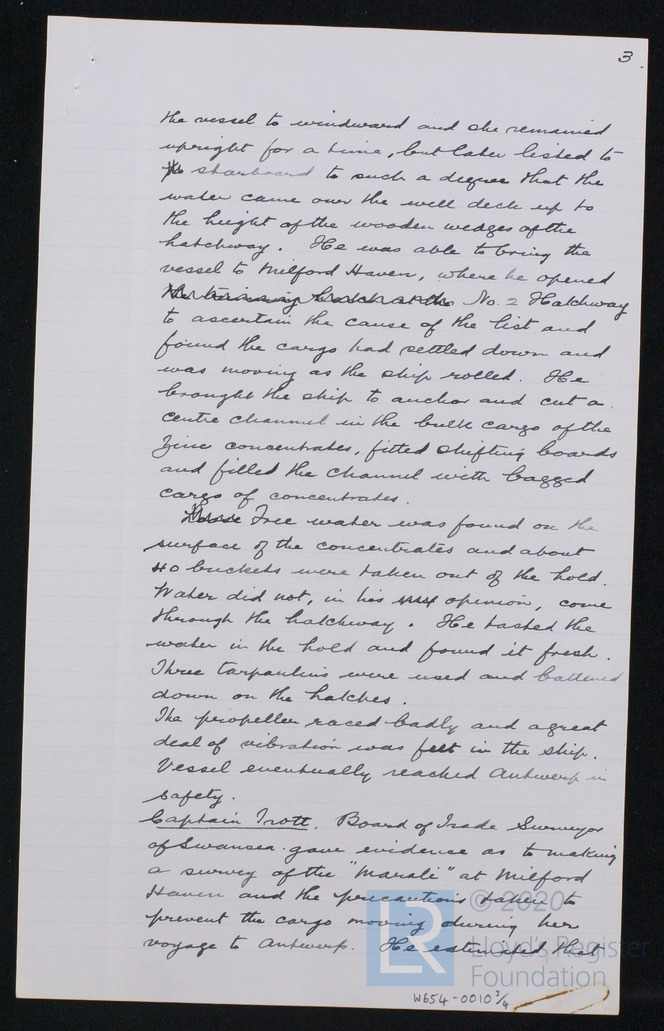 3.
the vessel to windward and she remained
upright for a time, but later listed to
starboard to such a degree that the
water came over the well deck up to
the height of the wooden wedges of the
hatchway. He was able to bring the
vessel to Milford Haven, where he opened
the trimming hatch at the No. 2 Hatchway
to ascertain the cause of the list and
found the cargo had settled down and
was moving as the ship rolled. He
brought the ship to anchor and cut a
centre channel in the bulk cargo of the
Zinc concentrates, fitted shifting boards
and filled the channel with bagged
cargo of concentrates.
Free water was found on the
surface of the concentrates and about
40 buckets were taken out of the hold.
Water did not, in his opinion, come
through the hatchway. He tasted the
water in the hold and found it fresh.
Three tarpaulins were used and battened
down on the hatches.
The propeller raced badly and a great
deal of vibration was felt in the ship.
Vessel eventually reached Antwerp in
safety.
Captain Trott. Board of Trade Surveyor
of Swansea gave evidence as to making
a survey of the "Marali" at Milford
Haven and the precautions taken to
prevent the cargo moving during her
voyage to Antwerp. He estimated that
LR © 2020
Lloyd's Register
Foundation
W654-0010 3/4